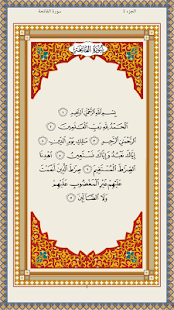 الجزء ١
سورة الفاتحة
سُورَةُ الفَاتِحَةِ
بِسْمِ اللَّهِ الرَّحْمَٰنِ الرَّحِيمِ ١
الْحَمْدُ لِلَّهِ رَبِّ الْعَالَمِينَ ٢
الرَّحْمَٰنِ الرَّحِيمِ ٣ مَالِكِ يَوْمِ الدِّينِ ٤
إِيَّاكَ نَعْبُدُ وَإِيَّاكَ نَسْتَعِينُ ٥ اهْدِنَا
الصِّرَاطَ الْمُسْتَقِيمَ ٦ صِرَاطَ الَّذِينَ أَنْعَمْتَ
عَلَيْهِمْ غَيْرِ الْمَغْضُوبِ عَلَيْهِمْ
وَلَا الضَّالِّينَ ٧